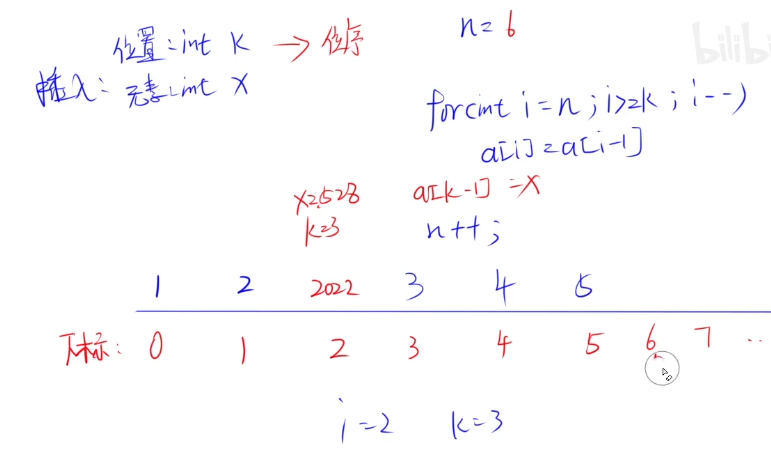 bilibi
位置:int k → 位序
n=6
插入: 元素:int x
for(int i=n;i>=k;i--)
a[i]=a[i-1]
x=528
a[k-1]=x
k=3
n++;
1 2 2022 3 4 5
下标: 0 1 2 3 4 5 6 7 ..
i=2 k=3